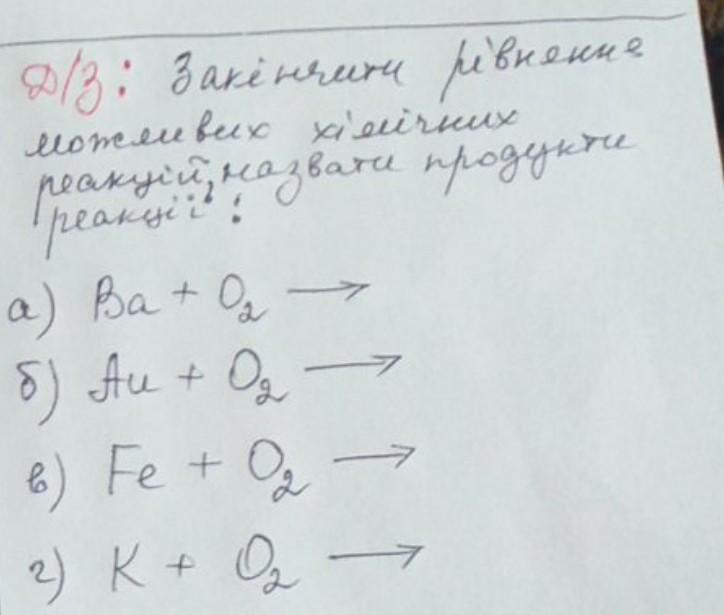 Д/З: Закінчити рівняння
можливих хімічних
реакцій, назвати продукти
реакції:
а) Ba + O₂ →
б) Au + O₂ →
в) Fe + O₂ →
г) K + O₂ →